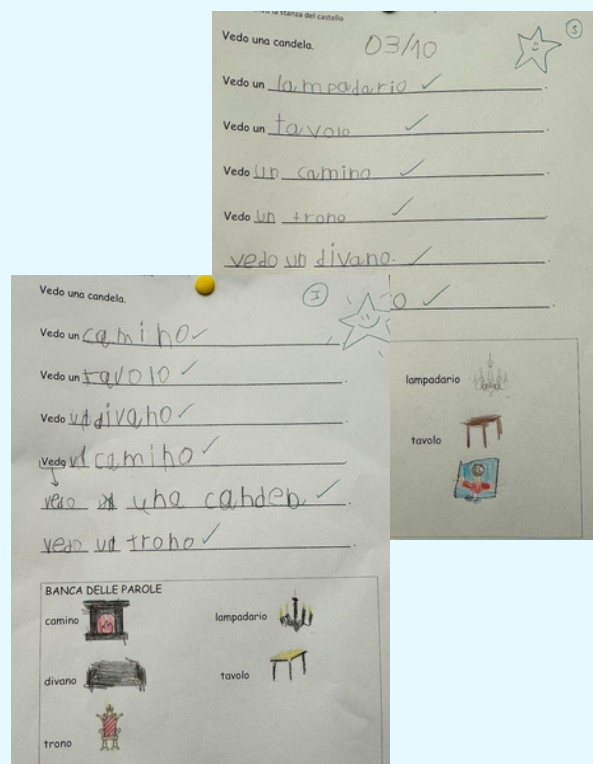 la stanza del castello
Vedo una candela. 03/10
S
Vedo un lampadario ✓.
Vedo un tavolo ✓.
Vedo un camino ✓.
Vedo un trono ✓
vedo un divano. ✓.
o ✓.
lampadario
tavolo
Vedo una candela.
I
Vedo un camino ✓
Vedo un tavolo ✓.
Vedo un divano ✓.
Vedo un camino ✓.
vedo una candela ✓.
vedo un trono ✓.
BANCA DELLE PAROLE
camino
lampadario
divano
tavolo
trono